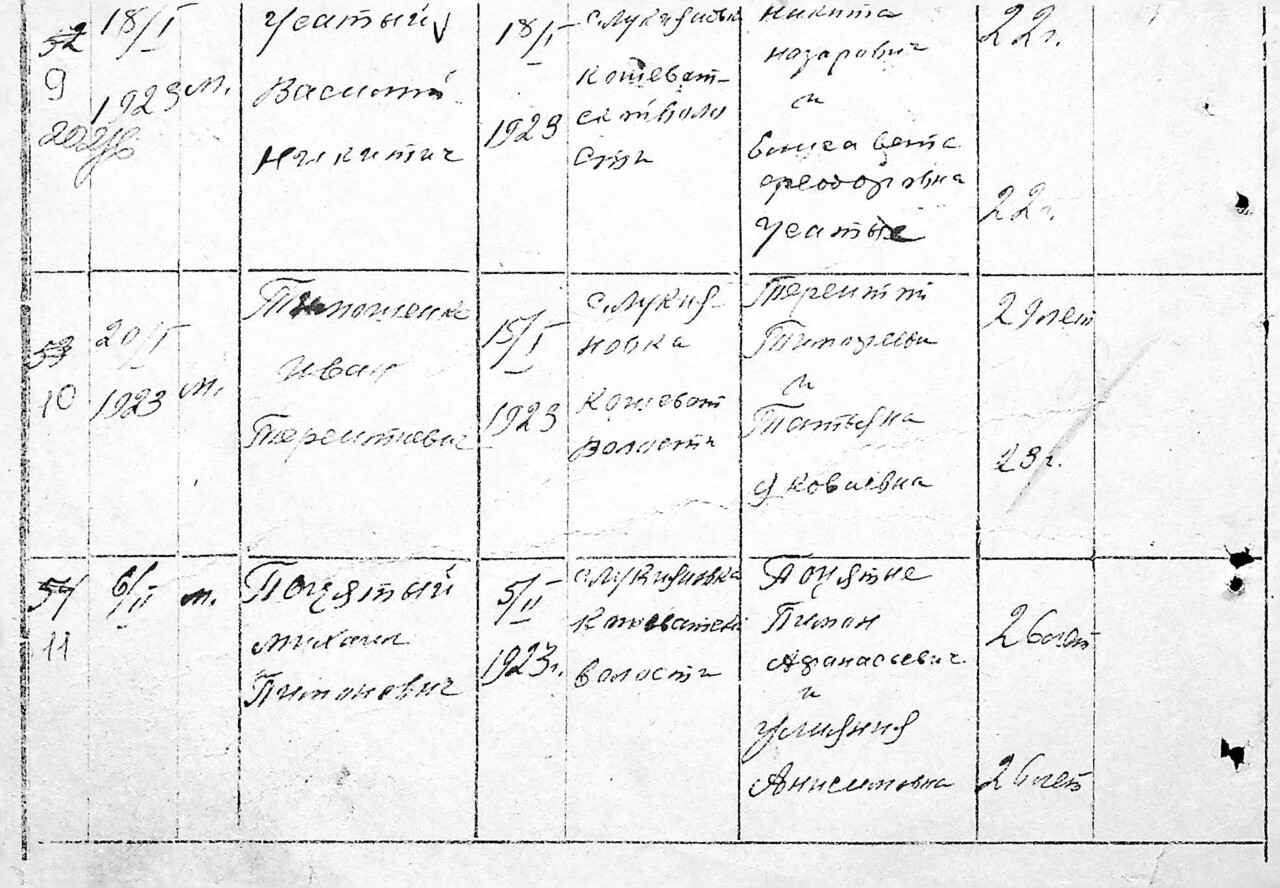 52
9
18/I
1923
м.
Усатый
Василий
Никитич
18/I
1923
с Лукияновка
Кошеват-
ск твола
сти
Никита
Назарович
и
Елисавета
Феодоровна
Усатые
22г.
22г.
53
10
20/I
1923
м.
Тимошенко
Иван
Терентиевич
15/I
1923
с. Лукия-
новка
Кошеват
Волости
Терентий
и
Татьяна
Яковлевна
29 лет
23 г.
54
11
6/II
м.
Поцятый
Михаил
Пимонович
5/II
1923г.
с Лукияновка
Кошеватск
волости
Поцятие
Пимон
Афанасьевич
и
Улияния
Анисимовна
26 лет
26 лет